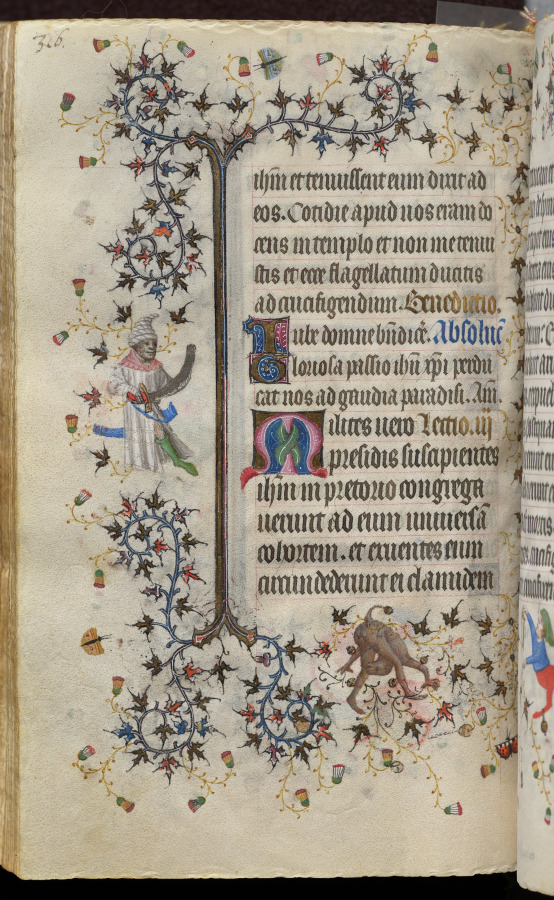 326.
ihm et tenuissent eum dixit ad
eos. Cotidie apud uos eram do
cens in templo et non me tenui
stis et ecce flagellatum ducitis
ad crucifigendum. Benedictio.
Iube domne bn̄dicē. Absoluc̄
Gloriosa passio ihū xp̄i perdu
cat nos ad gaudia paradisi. Am̄.
Milites uero Lectio. iij
presidis suscipientes
ihm̄ in pretorio congrega
uerunt ad eum uniuersā
cohortem. et exuentes eum
circumdederunt ei clamidem